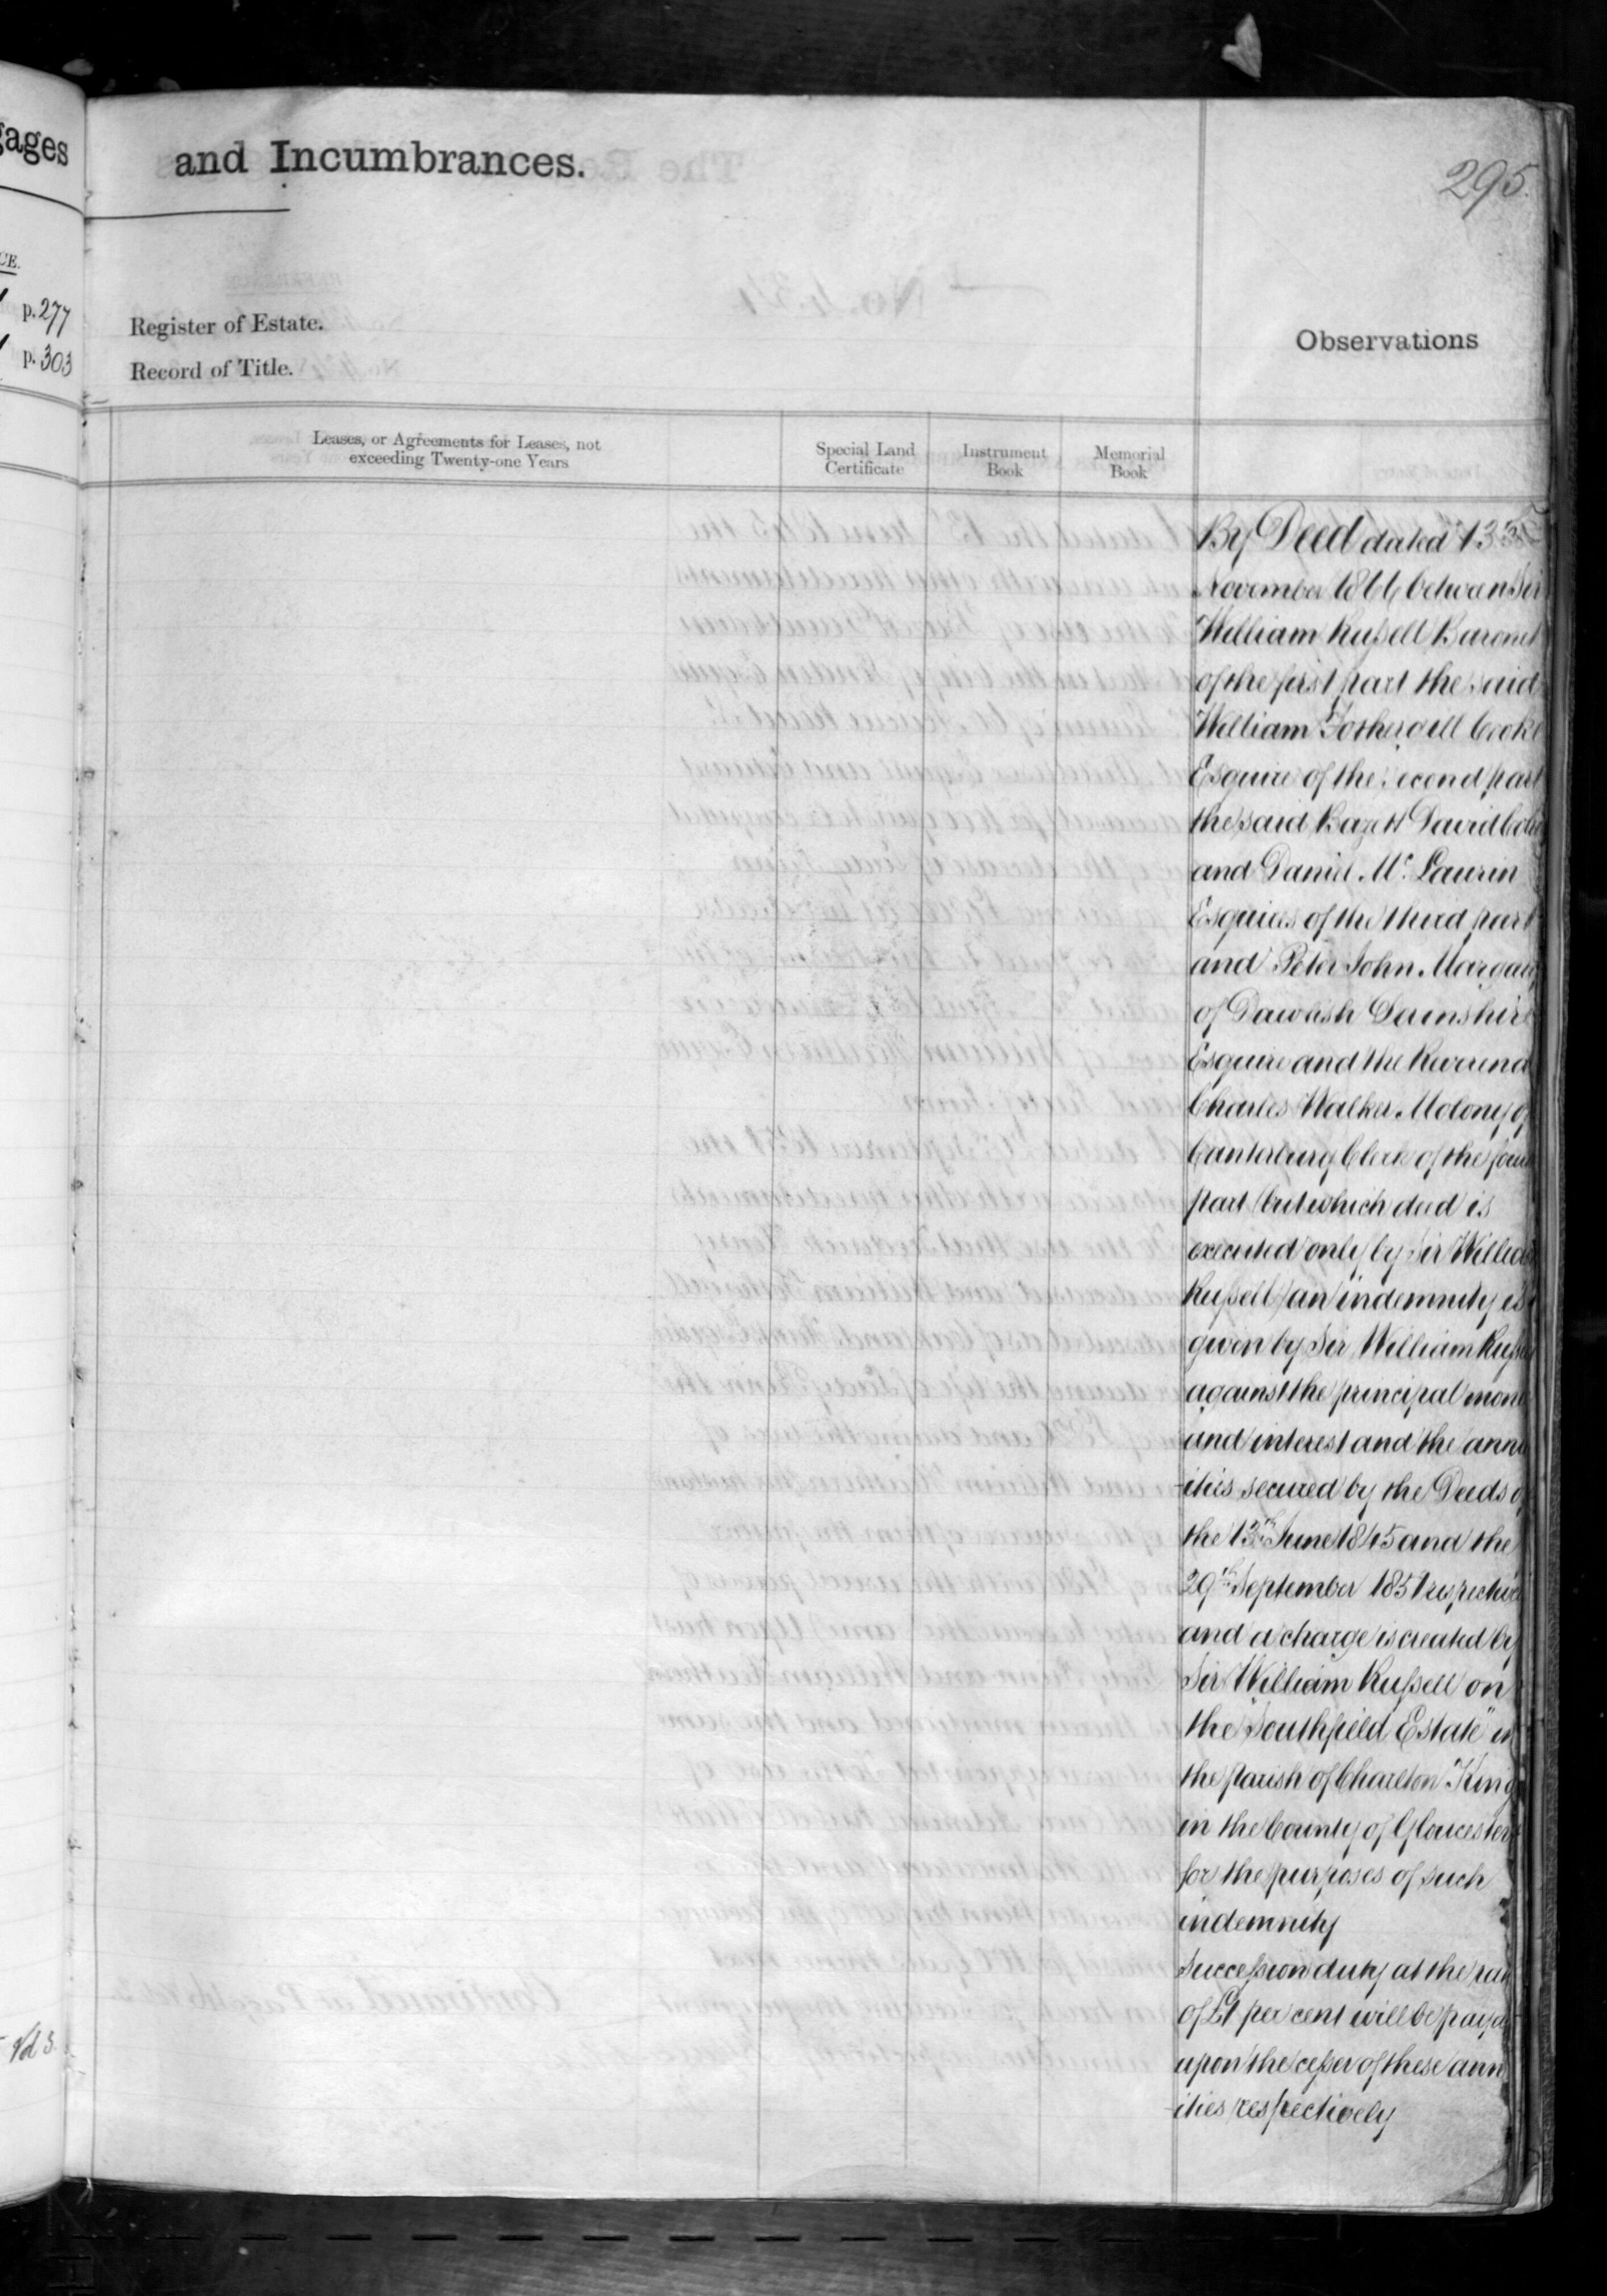 gages
and Incumbrances.
295.
CE.
p. 277
p. 303
Register of Estate.
Record of Title.
Observations
Leases, or Agreements for Leases, not
exceeding Twenty-one Years
Special Land
Certificate
Instrument
Book
Memorial
Book
By Deed dated 13
November 1866 between Sir
William Russell Baronet
of the first part the said
William Fothergill Cooke
Esquire of the second part
the said Bazett David
and Daniel McLaurin
Esquires of the third part
and Peter John Margary
of Dawlish Devonshire
Esquire and the Reverend
Charles Walker Molony of
Canterbury Clerk of the four
part (but which deed is
executed only by Sir William
Russell) an indemnity is
given by Sir William Russ
against the principal mon
and interest and the annu
-ities secured by the Deeds of
the 13th June 1845 and the
29th September 1851 respective
and a charge is created by
Sir William Russell on
the "Southfield Estate" in
the parish of Charlton Kings
in the County of Gloucester
for the purposes of such
indemnity
Succession duty at the rate
of £1 per cent will be paya
upon the cesser of these ann
-ities respectively